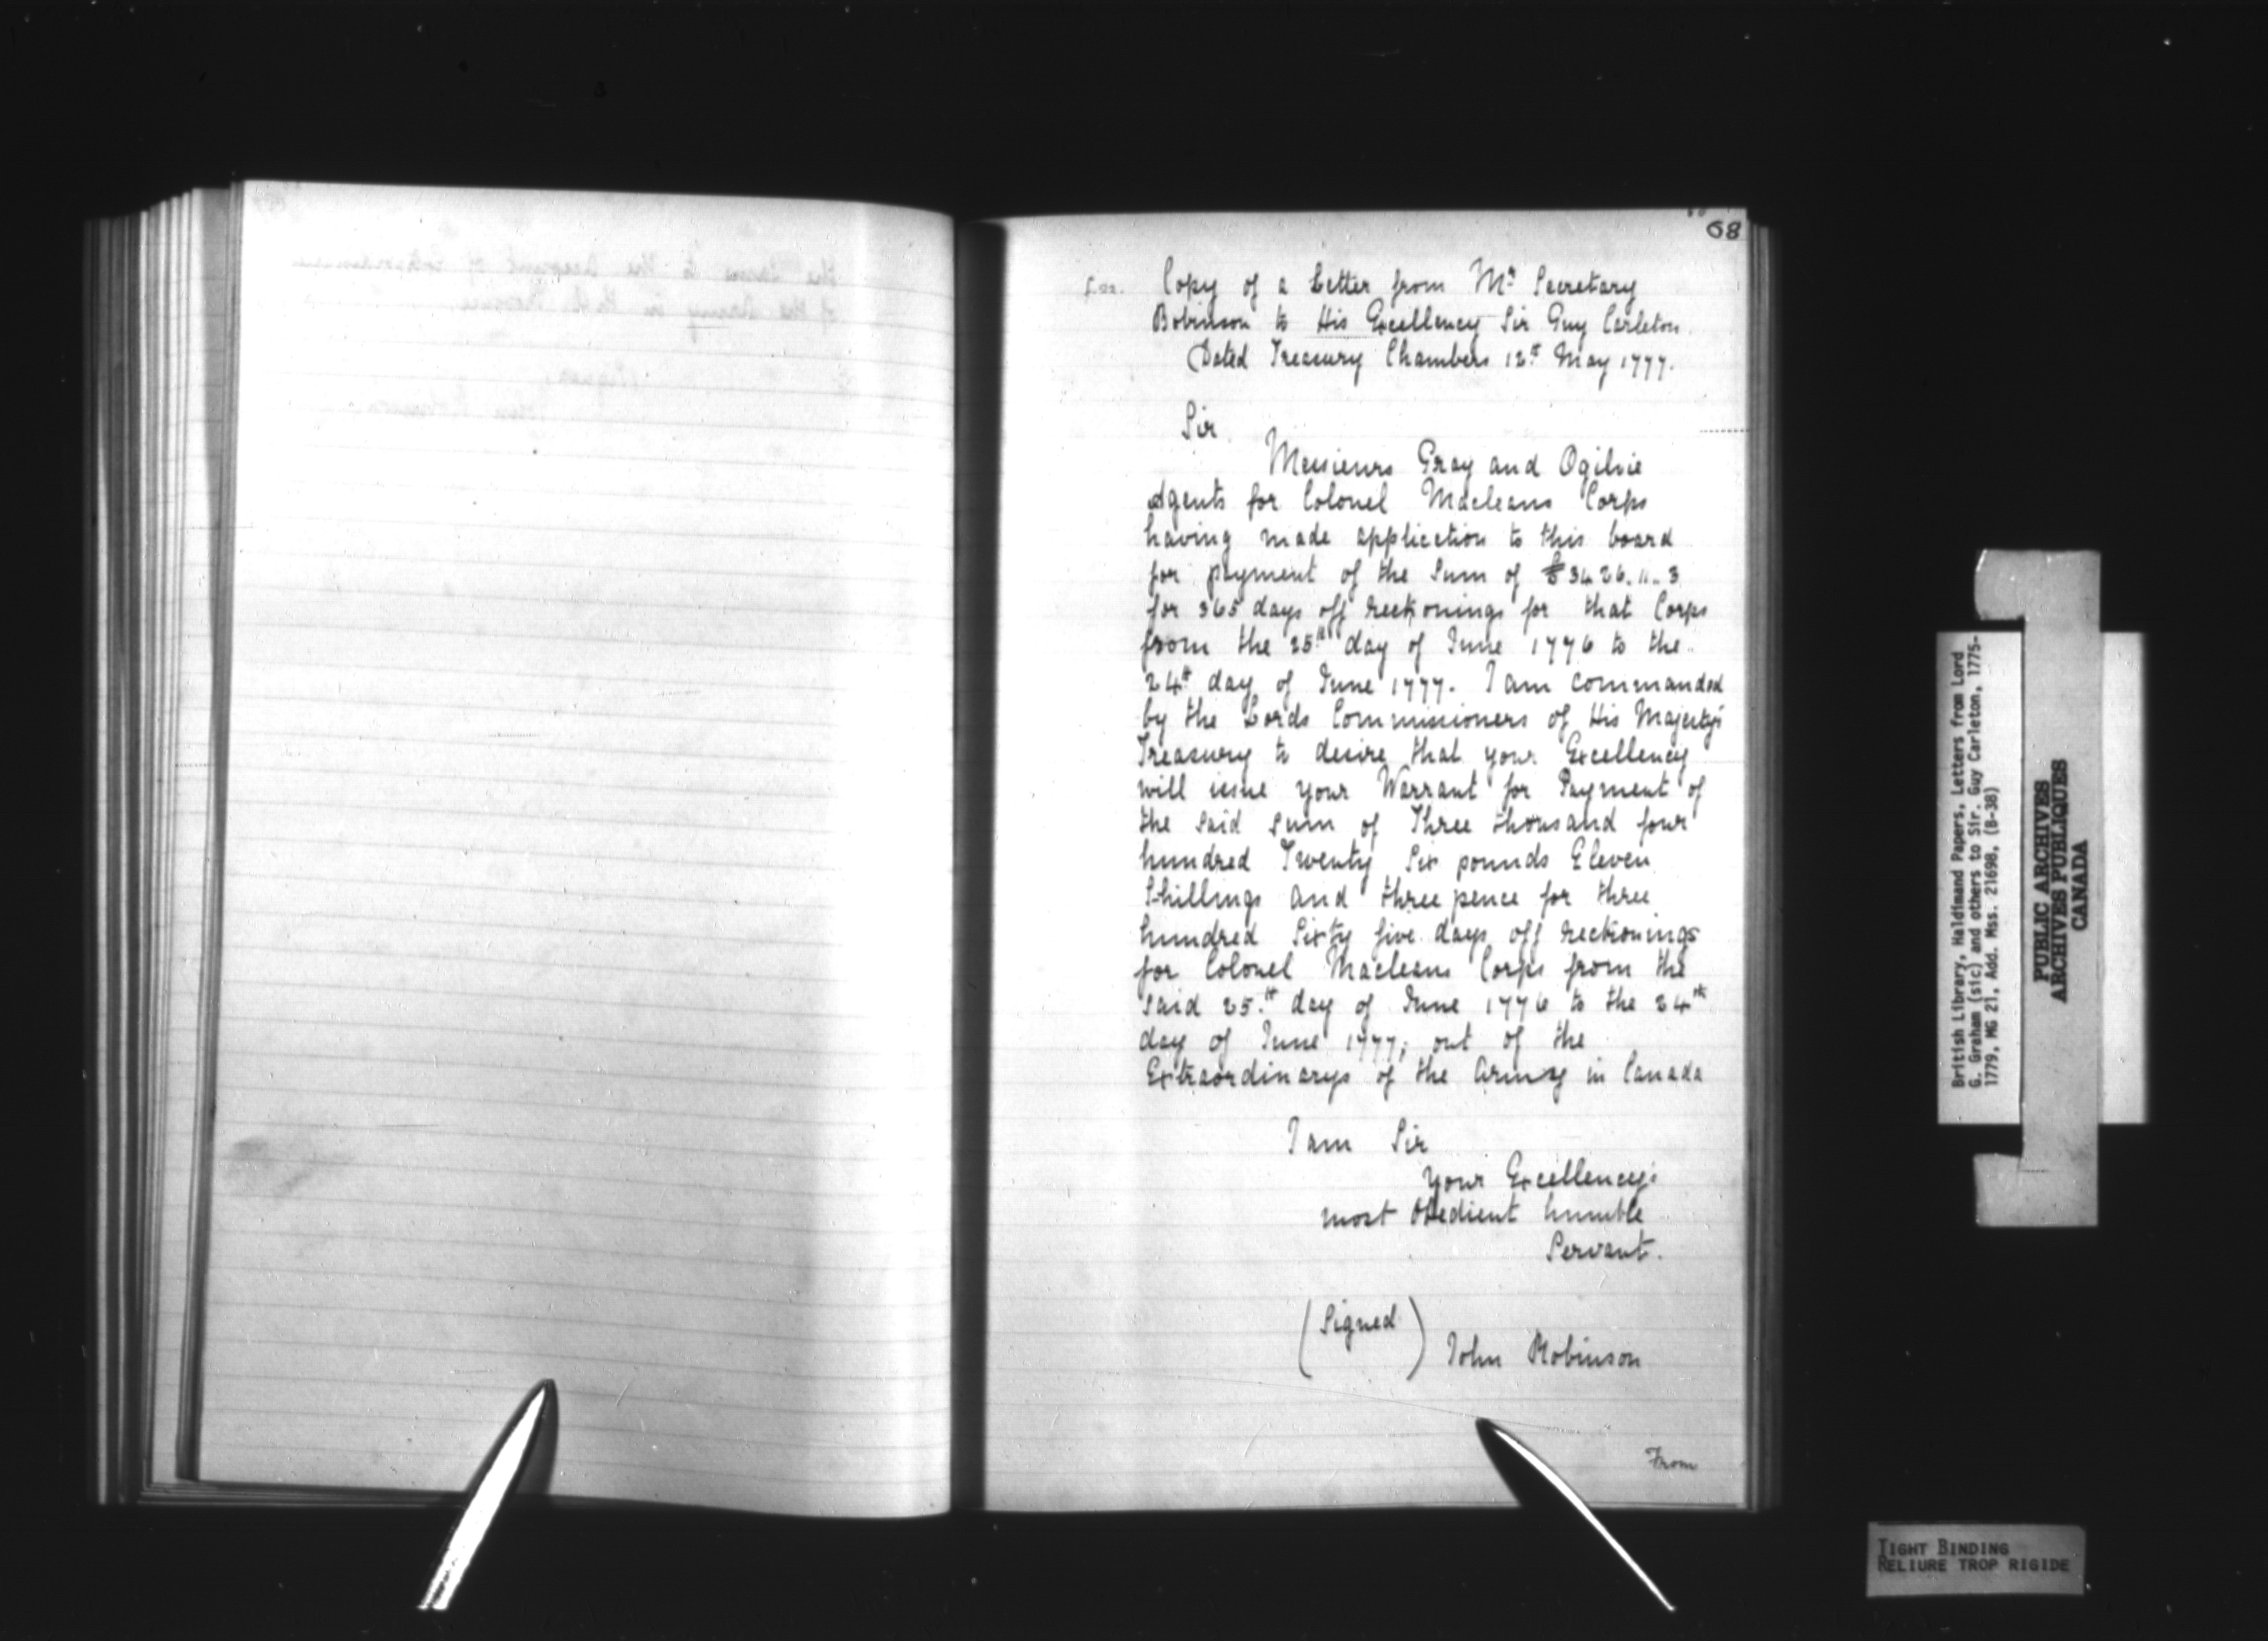 68
Copy of a Letter from Mr Secretary
Robinson to His Excellency Sir Guy Carleton.
Dated Treasury Chambers 12th May 1777.
Sir
Messieurs Gray and Ogilvie
Agents for Colonel Macleans Corps
having made application to this board
for payment of the Sum of £3426.11.3
for 365 days off reckonings for that Corps
from the 25th day of June 1776 to the
24th day of June 1777. I am commanded
by the Lords Commissioners of His Majesty's
Treasury to desire that your Excellency
will issue your Warrant for Payment of
the said sum of Three thousand four
hundred Twenty Six pounds Eleven
Shillings and three pence for three
hundred Sixty five days off reckonings
for Colonel Macleans Corps from the
said 25th day of June 1776 to the 24th
day of June 1777, out of the
Extraordinarys of the Army in Canada
I am Sir
Your Excellency's
most Obedient humble
Servant.
(Signed) John Robinson
From
British Library, Haldimand Papers, Letters from Lord
G. Graham (sic) and others to Sir. Guy Carleton, 1775-
1779, MG 21, Add. Mss. 21698, (B-38)
PUBLIC ARCHIVES
ARCHIVES PUBLIQUES
CANADA
TIGHT BINDING
RELIURE TROP RIGIDE